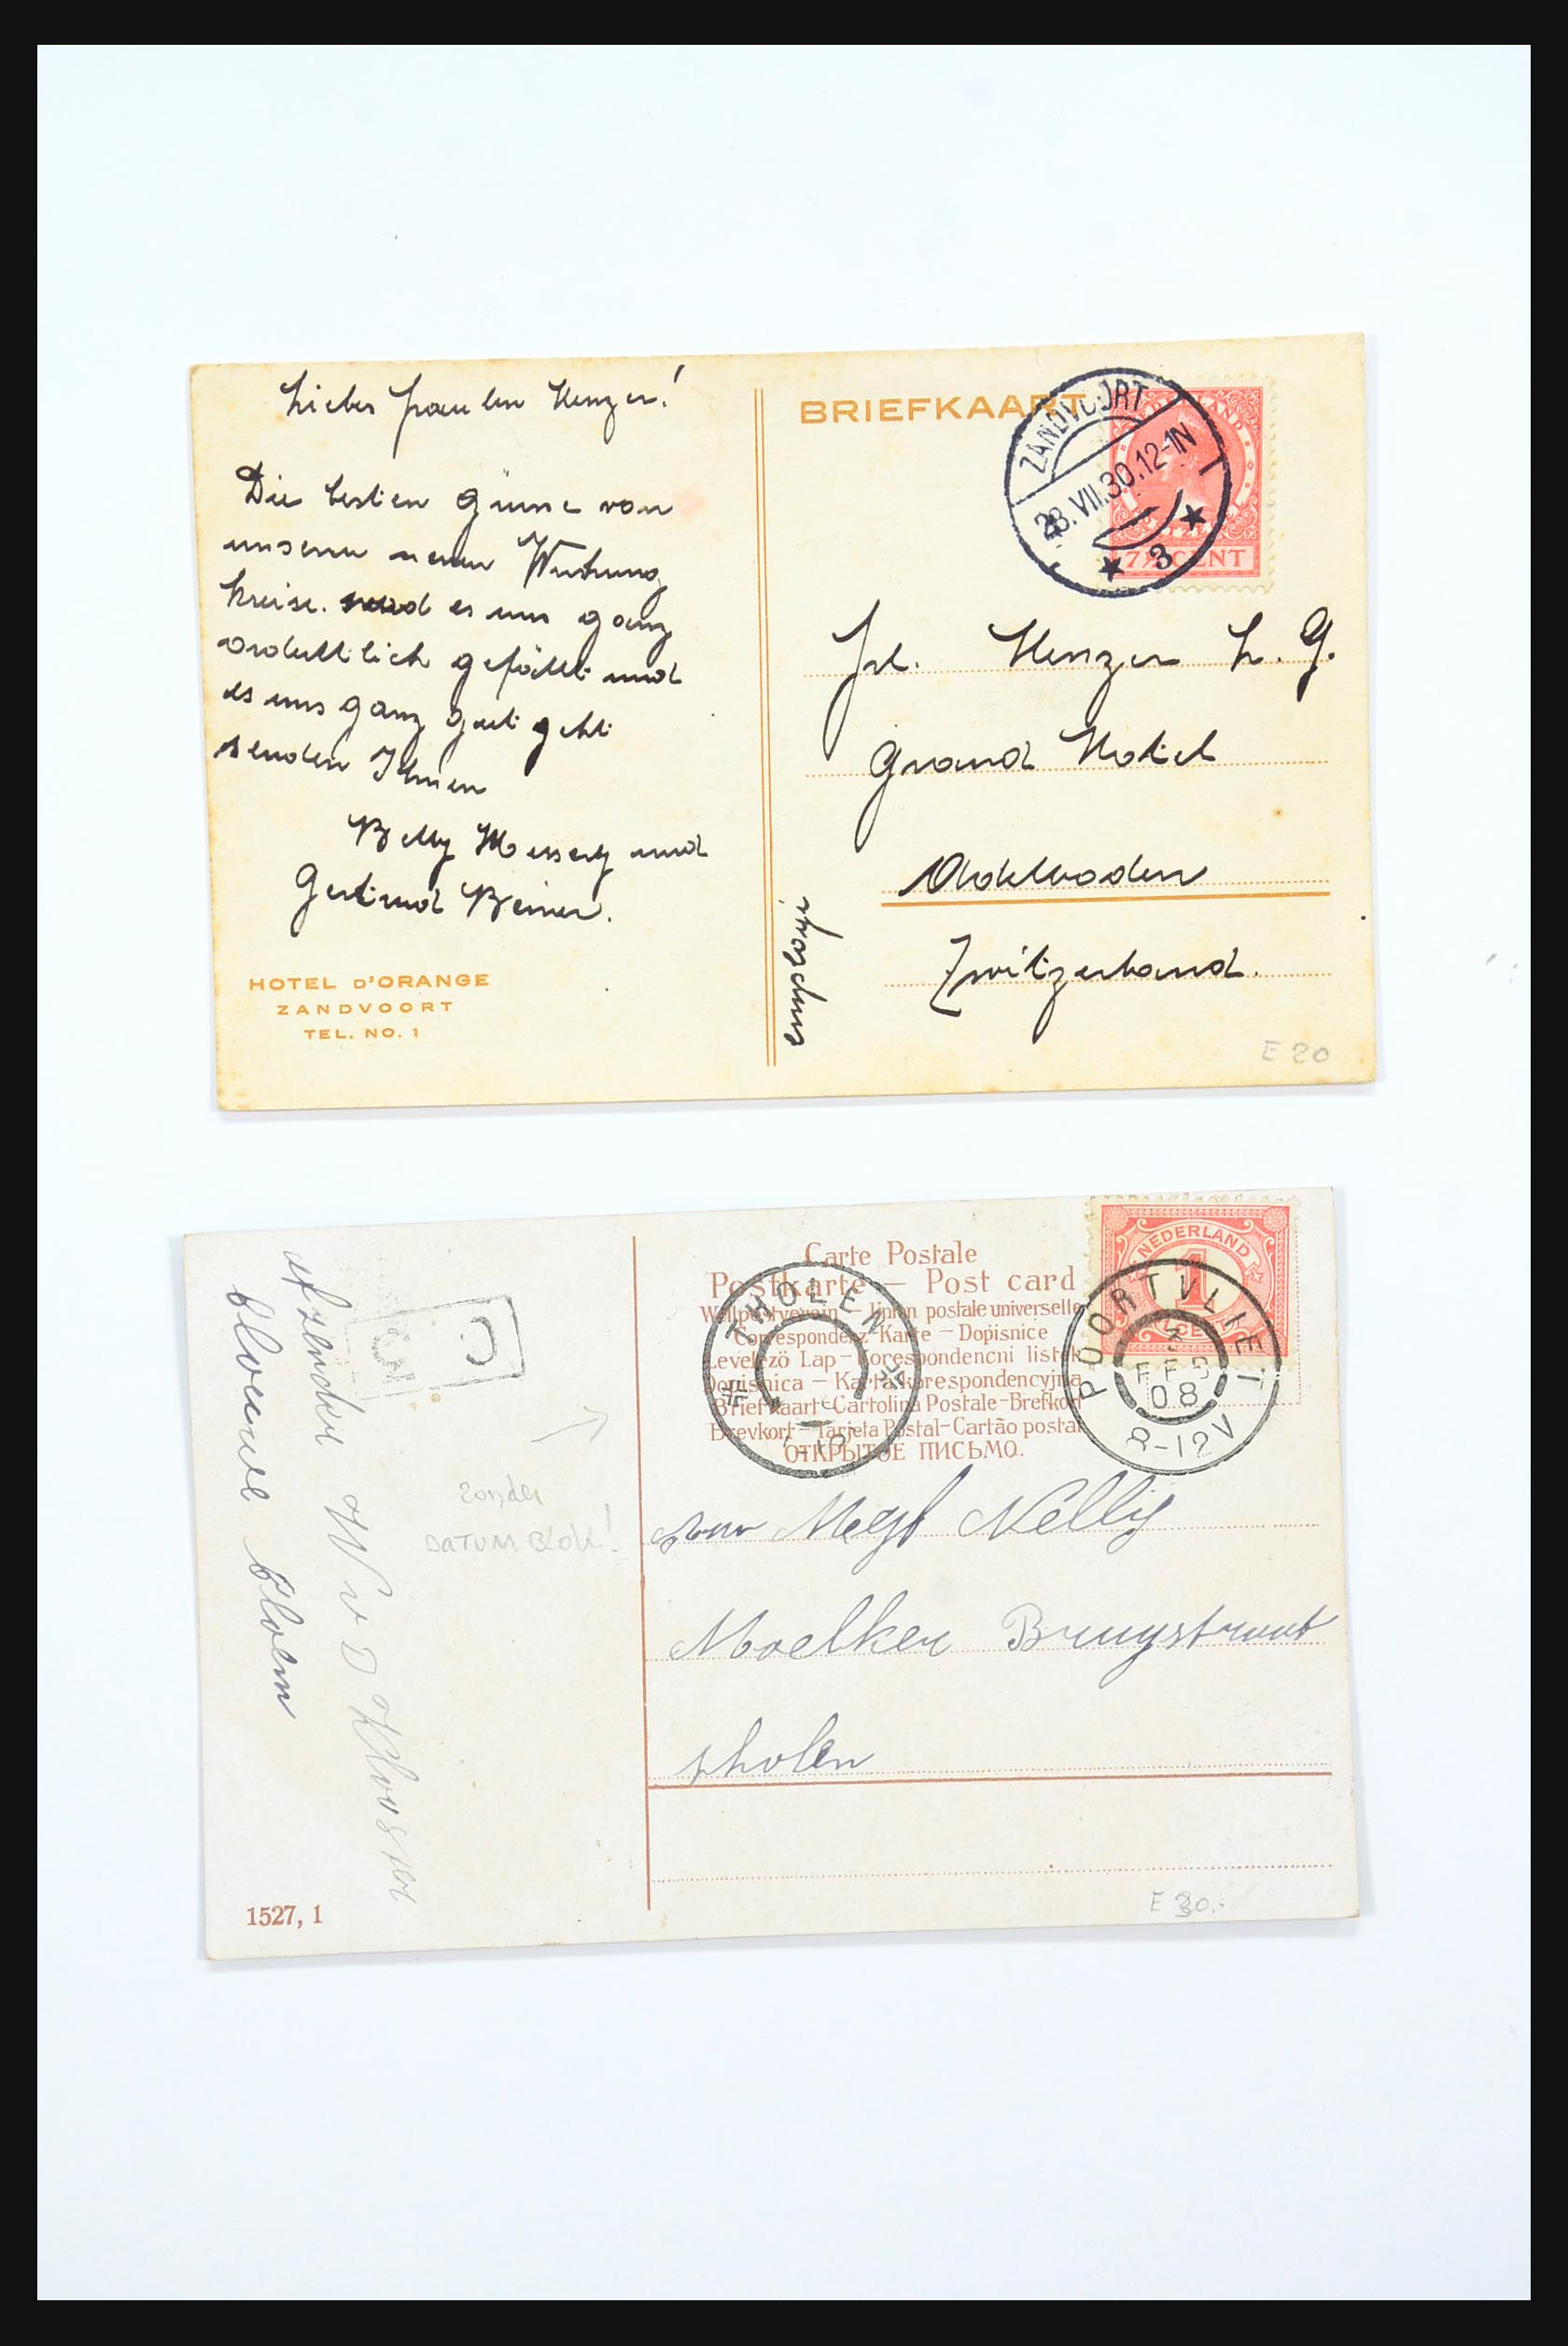 Liebes Fräulein Henzer!
Die besten Grüsse von
unserem neuen Wirkung
kreise. es uns ganz
ordentlich gefällt und
es uns ganz gut geht
senden Ihnen
Betty Messerly und
Gertrud Beiner.
HOTEL D'ORANGE
ZANDVOORT
TEL. NO. 1
BRIEFKAART
NEDERLAND
7½ CENT
ZANDVOORT
28.VII.30.12-1N
3
Frl. Henzer L. G.
Grand Hotel
Adelboden
Zwitzerland.
E 20
afzender W v D Klooster
bloeme bloem
zonder
DATUMBLOK!
1527, 1
Carte Postale
Postkarte — Post card
Weltpostverein — Union postale universelle
Correspondenz-Karte — Dopisnice
Levelezö Lap — Korespondencni listek
Dopisnica — Karta korespondencyjna
Briefkaart-Cartolina Postale-Brefkort
Brevkort — Tarjeta Postal-Cartão postal
ОТКРЫТОЕ ПИСЬМО.
THOLEN
NEDERLAND
1
POORTVLIET
3
FEB
08
8-12V
Mej Nellij
Moelker Bruystraat
tholen
E 30.-